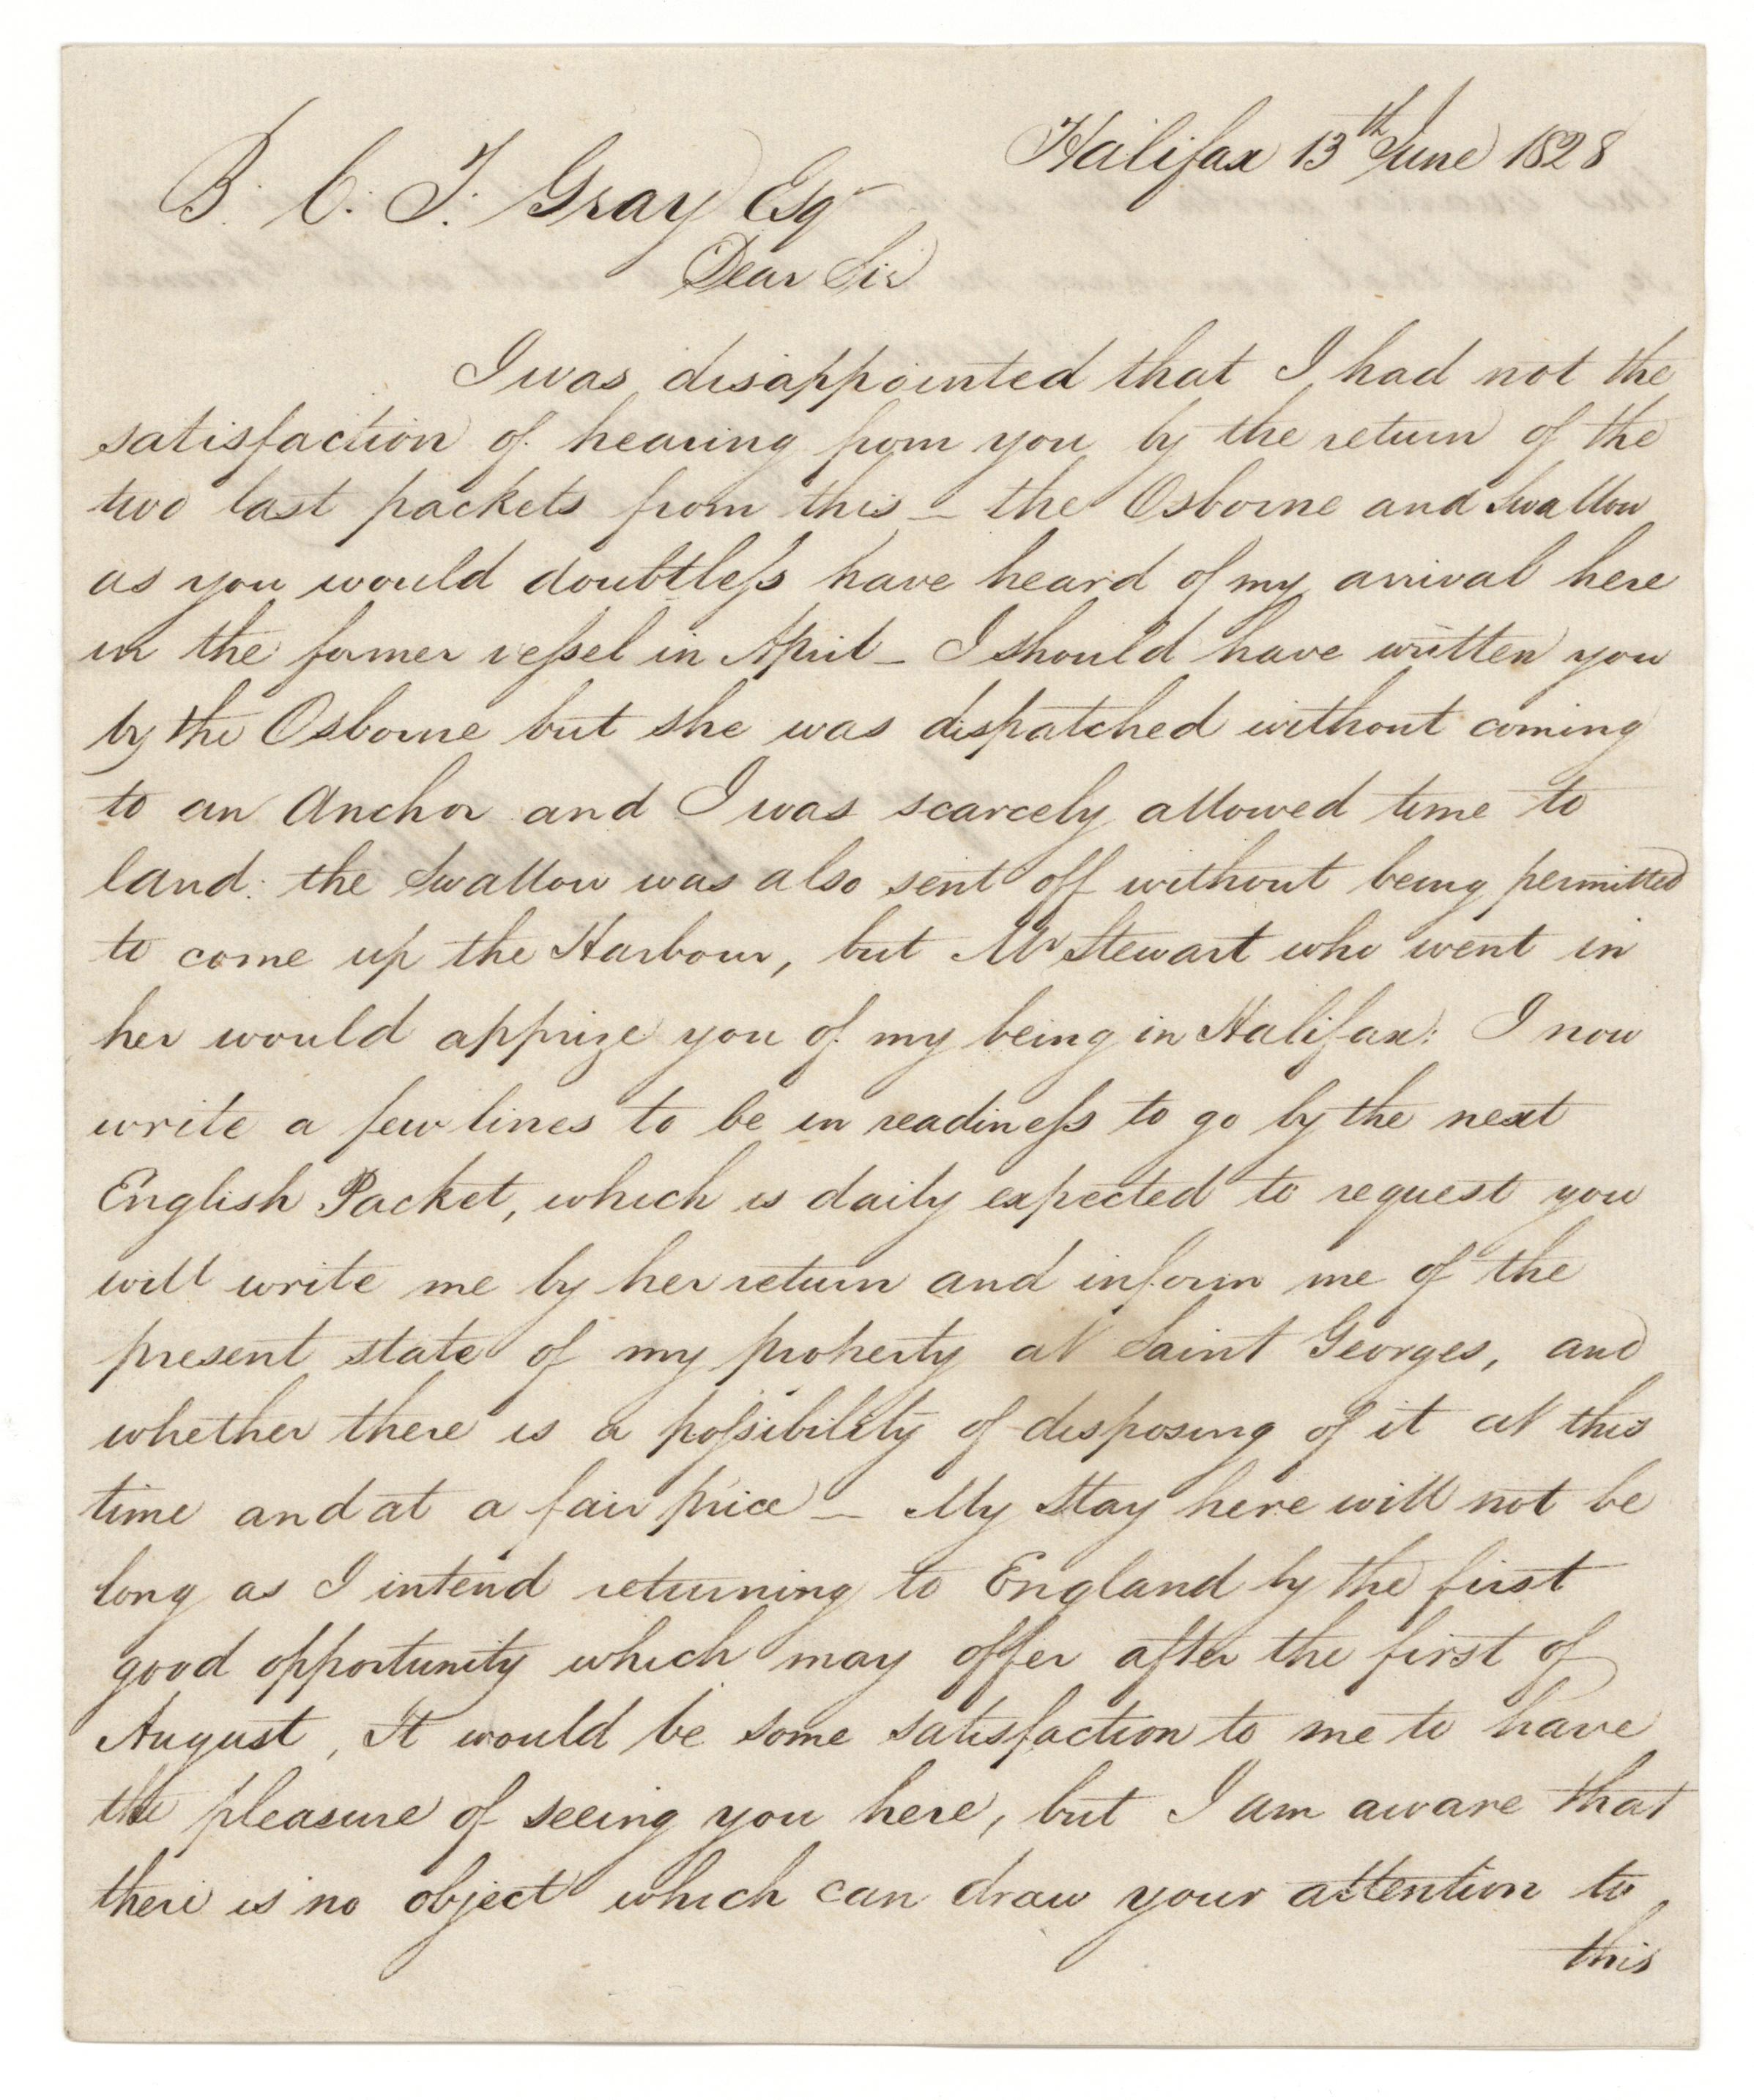 Halifax 13th June 1828
B. C. T. Gray Esqr
Dear Sir
I was disappointed that I had not the
satisfaction of hearing from you by the return of the
two last packets from this _ the Osborne and Swallow
as you would doubtleſs have heard of my arrival here
in the former veſsel in April _ I should have written you
by the Osborne but she was dispatched without coming
to an Anchor and I was scarcely allowed time to
land: the Swallow was also sent off without being permitted
to come up the Harbour, but Mr Stewart who went in
her would apprize you of my being in Halifax: I now
write a few lines to be in readineſs to go by the next
English Packet, which is daily expected to request you
will write me by her return and inform me of the
present state of my property at Saint Georges, and
whether there is a poſsibility of disposing of it at this
time and at a fair price _ My Stay here will not be
long as I intend returning to England by the first
good opportunity which may offer after the first of
August, It would be some satisfaction to me to have
the pleasure of seeing you here, but I am aware that
there is no object which can draw your attention to
this